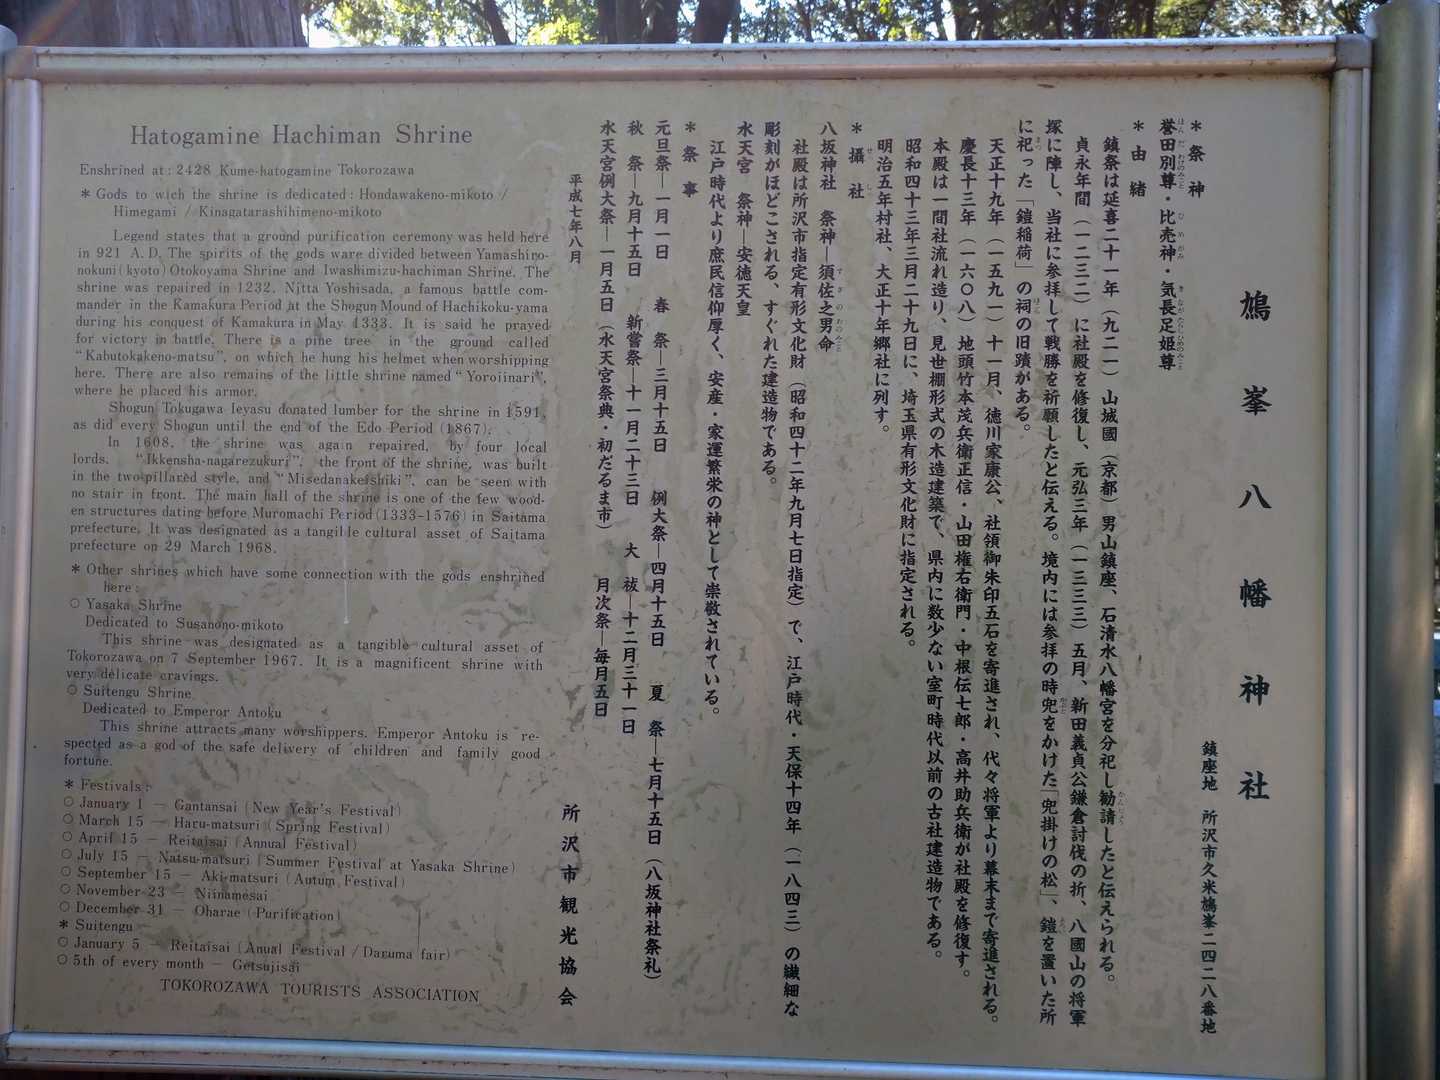 鳩峯八幡神社
鎮座地 所沢市久米鳩峯二四二八番地
＊祭神
誉田別尊・比売神・気長足姫尊
＊由緒
鎮祭は延喜二十一年（九二一）山城國（京都）男山鎮座、石清水八幡宮を分祀し勧請したと伝えられる。
貞永年間（一二三二）に社殿を修復し、元弘三年（一三三三）五月、新田義貞公鎌倉討伐の折、八國山の将軍
塚に陣し、当社に参拝して戦勝を祈願したと伝える。境内には参拝の時兜をかけた「兜掛けの松」、鎧を置いた所
に祀った「鎧稲荷」の祠の旧蹟がある。
天正十九年（一五九一）十一月、徳川家康公、社領御朱印五石を寄進され、代々将軍より幕末まで寄進される。
慶長十三年（一六〇八）地頭竹本茂兵衛正信・山田権右衛門・中根伝七郎・高井助兵衛が社殿を修復す。
本殿は一間社流れ造り、見世棚形式の木造建築で、県内に数少ない室町時代以前の古社建造物である。
昭和四十三年三月二十九日に、埼玉県有形文化財に指定される。
明治五年村社、大正十年郷社に列す。
＊攝社
八坂神社 祭神―須佐之男命
社殿は所沢市指定有形文化財（昭和四十二年九月七日指定）で、江戸時代・天保十四年（一八四三）の繊細な
彫刻がほどこされる、すぐれた建造物である。
水天宮 祭神―安徳天皇
江戸時代より庶民信仰厚く、安産・家運繁栄の神として崇敬されている。
＊祭事
元旦祭―一月一日 春祭―三月十五日 例大祭―四月十五日 夏祭―七月十五日（八坂神社祭礼）
秋祭―九月十五日 新嘗祭―十一月二十三日 大祓―十二月三十一日
水天宮例大祭―一月五日（水天宮祭典・初だるま市） 月次祭―毎月五日
平成七年八月
所沢市観光協会
Hatogamine Hachiman Shrine
Enshrined at : 2428 Kume-hatogamine Tokorozawa
＊ Gods to wich the shrine is dedicated : Hondawakeno-mikoto /
Himegami / Kinagatarashihimeno-mikoto
Legend states that a ground purification ceremony was held here
in 921 A.D. The spirits of the gods ware divided between Yamashiro-
nokuni (kyoto) Otokoyama Shrine and Iwashimizu-hachiman Shrine. The
shrine was repaired in 1232. Nitta Yoshisada, a famous battle com-
mander in the Kamakura Period at the Shogun Mound of Hachikoku-yama
during his conquest of Kamakura in May 1333. It is said he prayed
for victory in battle. There is a pine tree in the ground called
“Kabutokakeno-matsu”, on which he hung his helmet when worshipping
here. There are also remains of the little shrine named “Yoroiinari”,
where he placed his armor.
Shogun Tokugawa Ieyasu donated lumber for the shrine in 1591,
as did every Shogun until the end of the Edo Period (1867).
In 1608, the shrine was again repaired, by four local
lords. “Ikkensha-nagarezukuri”, the front of the shrine, was built
in the two-pillared style, and “Misedanakeishiki”, can be seen with
no stair in front. The main hall of the shrine is one of the few wood-
en structures dating before Muromachi Period (1333-1576) in Saitama
prefecture. It was designated as a tangible cultural asset of Saitama
prefecture on 29 March 1968.
＊ Other shrines which have some connection with the gods enshrined
here :
○ Yasaka Shrine
Dedicated to Susanono-mikoto
This shrine was designated as a tangible cultural asset of
Tokorozawa on 7 September 1967. It is a magnificent shrine with
very delicate cravings.
○ Suitengu Shrine
Dedicated to Emperor Antoku
This shrine attracts many worshippers. Emperor Antoku is re-
spected as a god of the safe delivery of children and family good
fortune.
＊ Festivals :
○ January 1 － Gantansai (New Year's Festival)
○ March 15 － Haru-matsuri (Spring Festival)
○ April 15 － Reitaisai (Annual Festival)
○ July 15 － Natsu-matsuri (Summer Festival at Yasaka Shrine)
○ September 15 － Aki-matsuri (Autum Festival)
○ November 23 － Niinamesai
○ December 31 － Oharae (Purification)
＊ Suitengu
○ January 5 － Reitaisai (Anual Festival / Daruma fair)
○ 5th of every month － Getsujisai
TOKOROZAWA TOURISTS ASSOCIATION